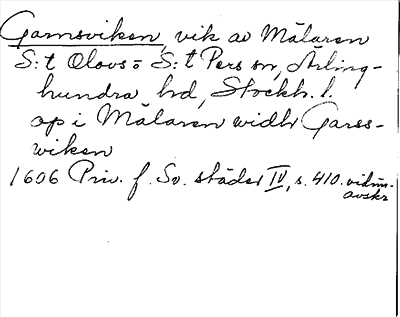 Garnsviken, vik av Mälaren
S:t Olovs o S:t Pers sn, Ärling-
hundra hd, Stockh. l.
op i Mälaren widh Garss-
wiken
1606 Priv. f. Sv. städer IV, s. 410. vidim.
avskr